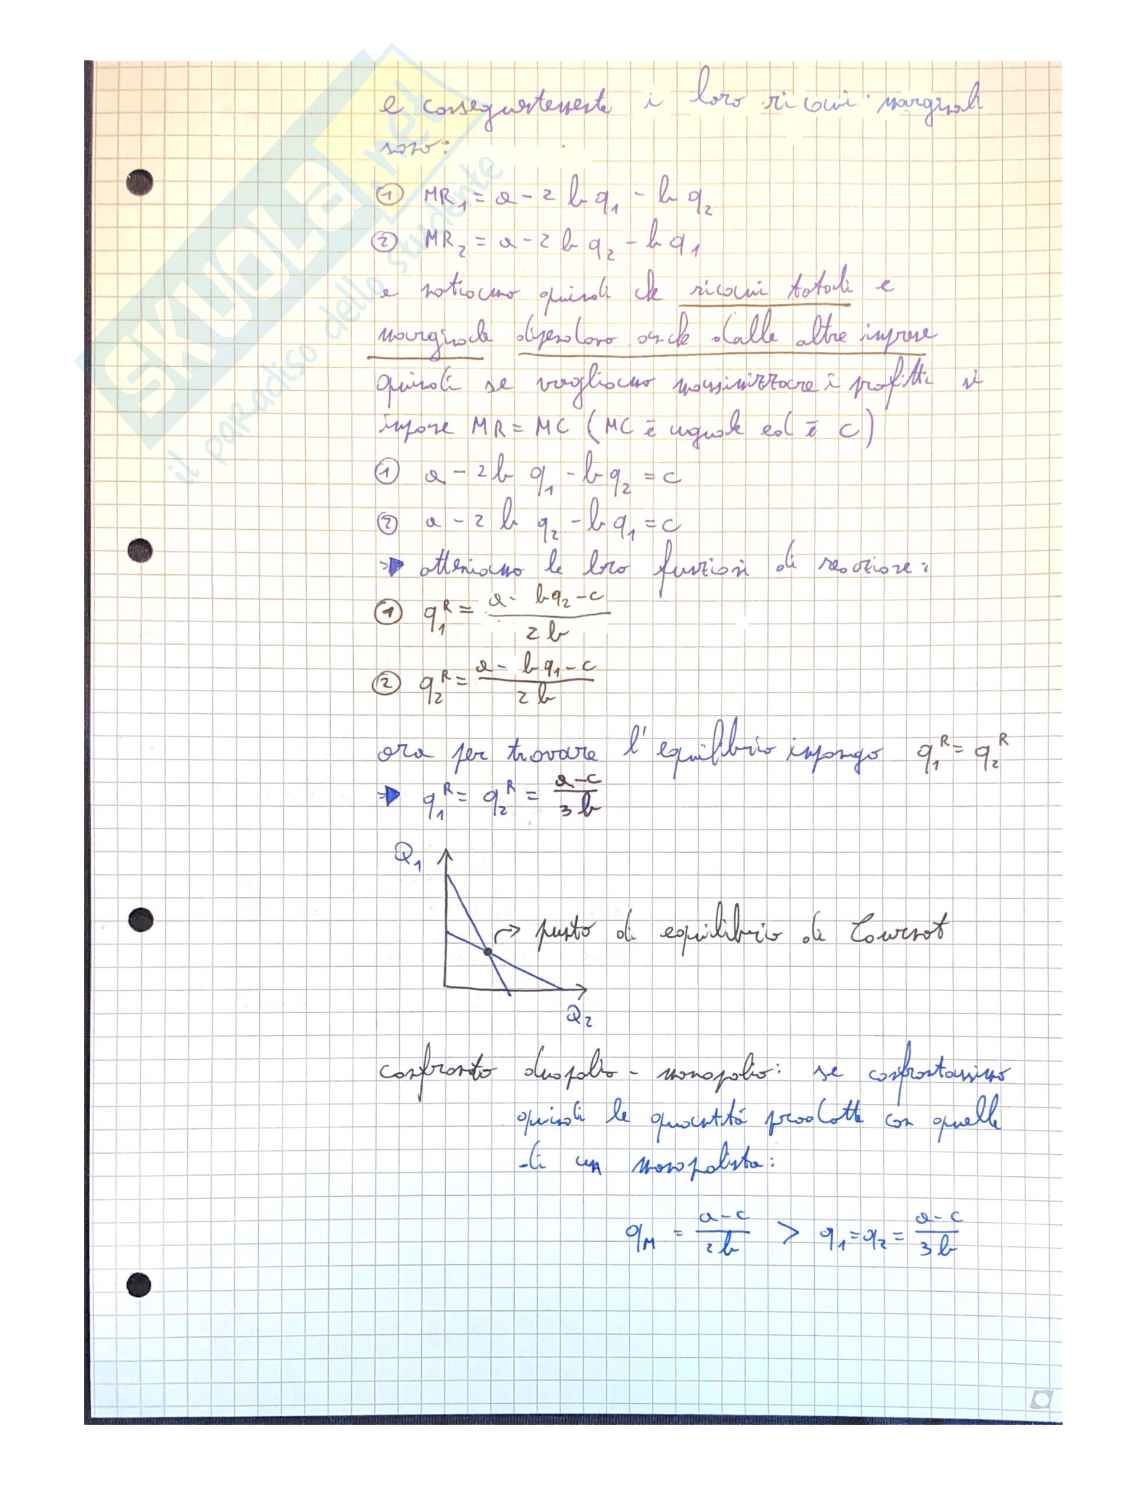 e conseguentemente i loro ricavi marginali
sono:
① MR₁ = a - 2 b q₁ - b q₂
② MR₂ = a - 2 b q₂ - b q₁
e notiamo quindi che ricavi totali e
marginali dipendono anche dalle altre imprese
quindi se vogliamo massimizzare i profitti si
impone MR = MC (MC è uguale ed è c)
① a - 2 b q₁ - b q₂ = c
② a - 2 b q₂ - b q₁ = c
⇒ otteniamo le loro funzioni di reazione:
① q₁ᴿ = (a - bq₂ - c) / 2b
② q₂ᴿ = (a - bq₁ - c) / 2b
ora per trovare l'equilibrio impongo q₁ᴿ = q₂ᴿ
⇒ q₁ᴿ = q₂ᴿ = (a-c) / 3b
Q₁
→ punto di equilibrio di Cournot
Q₂
confronto duopolio - monopolio: se confrontassimo
quindi le quantità prodotte con quelle
di un monopolista:
qM = (a-c) / 2b > q₁ = q₂ = (a-c) / 3b
SKUOLA.net
il paradiso dello studente